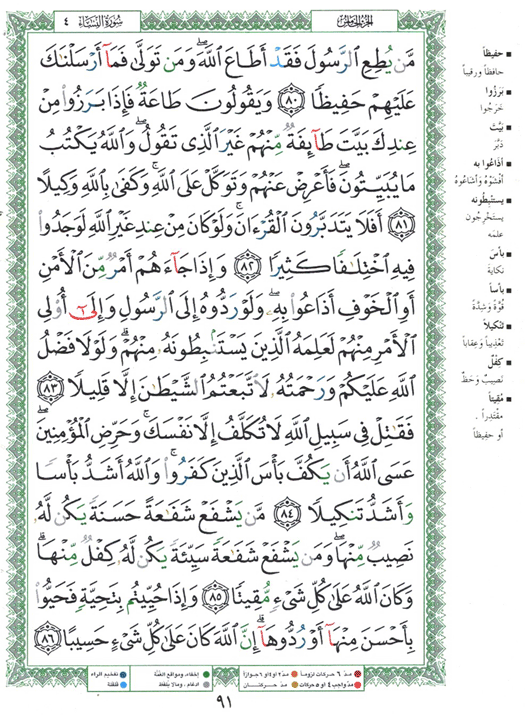 الجزء الخامس
سورة النساء ٤
مَّن يُطِعِ ٱلرَّسُولَ فَقَدْ أَطَاعَ ٱللَّهَ ۖ وَمَن تَوَلَّىٰ فَمَآ أَرْسَلْنَـٰكَ
عَلَيْهِمْ حَفِيظًا ٨٠ وَيَقُولُونَ طَاعَةٌ فَإِذَا بَرَزُوا۟ مِنْ
عِندِكَ بَيَّتَ طَآئِفَةٌ مِّنْهُمْ غَيْرَ ٱلَّذِى تَقُولُ ۖ وَٱللَّهُ يَكْتُبُ
مَا يُبَيِّتُونَ ۖ فَأَعْرِضْ عَنْهُمْ وَتَوَكَّلْ عَلَى ٱللَّهِ ۚ وَكَفَىٰ بِٱللَّهِ وَكِيلًا
٨١ أَفَلَا يَتَدَبَّرُونَ ٱلْقُرْءَانَ ۚ وَلَوْ كَانَ مِنْ عِندِ غَيْرِ ٱللَّهِ لَوَجَدُوا۟
فِيهِ ٱخْتِلَـٰفًا كَثِيرًا ٨٢ وَإِذَا جَآءَهُمْ أَمْرٌ مِّنَ ٱلْأَمْنِ
أَوِ ٱلْخَوْفِ أَذَاعُوا۟ بِهِۦ ۖ وَلَوْ رَدُّوهُ إِلَى ٱلرَّسُولِ وَإِلَىٰٓ أُو۟لِى
ٱلْأَمْرِ مِنْهُمْ لَعَلِمَهُ ٱلَّذِينَ يَسْتَنۢبِطُونَهُۥ مِنْهُمْ ۗ وَلَوْلَا فَضْلُ
ٱللَّهِ عَلَيْكُمْ وَرَحْمَتُهُۥ لَٱتَّبَعْتُمُ ٱلشَّيْطَـٰنَ إِلَّا قَلِيلًا ٨٣
فَقَـٰتِلْ فِى سَبِيلِ ٱللَّهِ لَا تُكَلَّفُ إِلَّا نَفْسَكَ ۚ وَحَرِّضِ ٱلْمُؤْمِنِينَ ۖ
عَسَى ٱللَّهُ أَن يَكُفَّ بَأْسَ ٱلَّذِينَ كَفَرُوا۟ ۚ وَٱللَّهُ أَشَدُّ بَأْسًا
وَأَشَدُّ تَنكِيلًا ٨٤ مَّن يَشْفَعْ شَفَـٰعَةً حَسَنَةً يَكُن لَّهُۥ
نَصِيبٌ مِّنْهَا ۖ وَمَن يَشْفَعْ شَفَـٰعَةً سَيِّئَةً يَكُن لَّهُۥ كِفْلٌ مِّنْهَا ۗ
وَكَانَ ٱللَّهُ عَلَىٰ كُلِّ شَىْءٍ مُّقِيتًا ٨٥ وَإِذَا حُيِّيتُم بِتَحِيَّةٍ فَحَيُّوا۟
بِأَحْسَنَ مِنْهَآ أَوْ رُدُّوهَآ ۗ إِنَّ ٱللَّهَ كَانَ عَلَىٰ كُلِّ شَىْءٍ حَسِيبًا ٨٦
■ حفيظاً
حافظاً ورقيباً
■ برزوا
خرجوا
■ بيّت
دبّر
■ أذاعوا به
أفشَوْه وأشاعوه
■ يستنبطونه
يستخرجون
علمه
■ بأس
نكاية
■ بأساً
قوّة وشدّة
■ تنكيلاً
تعذيباً وعقاباً
■ كفلٌ
نصيبٌ وحظّ
■ مقيتاً
مقتدراً .
أو حفيظاً
مدّ ٦ حركات لزوماً
مدّ ٢ أو ٤ أو ٦ جوازاً
إخفاء، ومواقع الغنّة
تفخيم الراء
مدّ واجب ٤ أو ٥ حركات
مدّ حركتان
ادغام، وما لا يلفظ
قلقلة
٩١